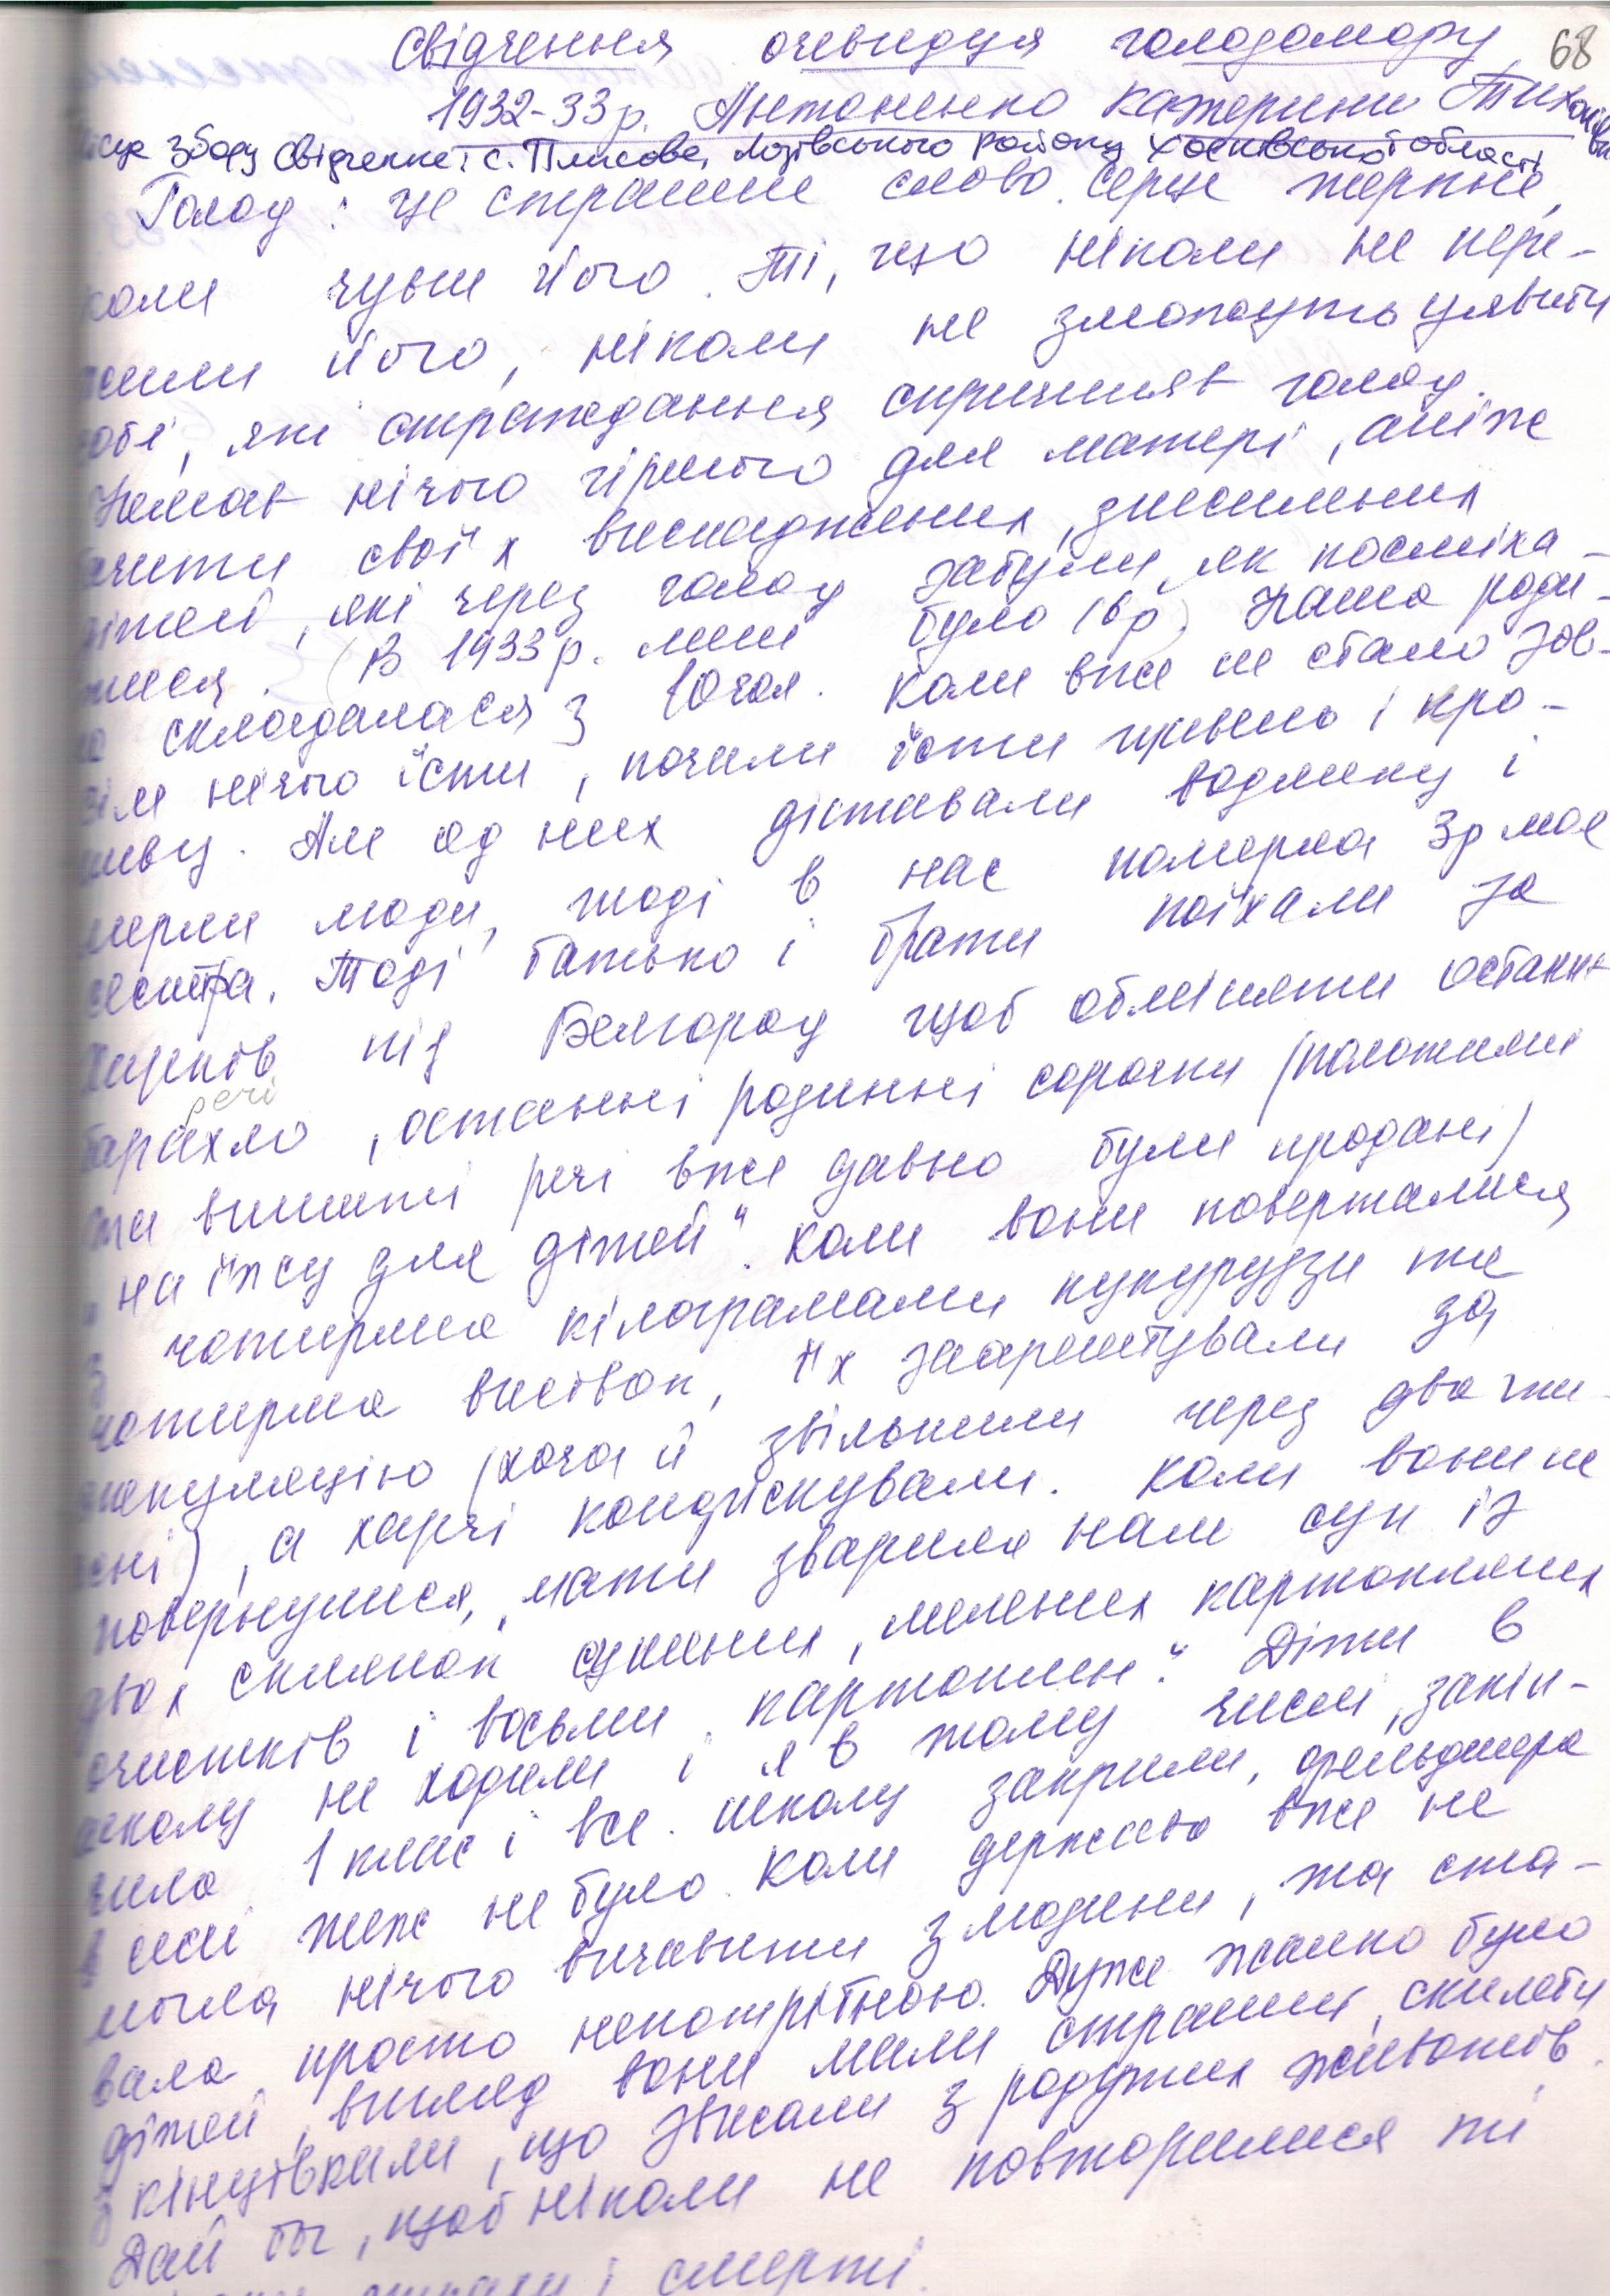 68
Свідчення очевидця голодомору
1932-33 р. Антоненко Катерини Тихонівни
місце збору свідчення: с. Плисове, Лозівського району Харківської області
Голод: це страшне слово. Серце терпне,
коли чуєш його. Ті, що ніколи не пере-
жили його, ніколи не зможуть уявити
собі, які страждання спричиняє голод.
Немає нічого гіршого для матері, аніж
бачити своїх виснажених, знесилених
дітей, які через голод забули, як посміха-
тися. (В 1933 р. мені було (6 р). Наша роди-
на складалася з 10 чол. Коли вже не стало зов-
сім нічого їсти, почали їсти щавель і кро-
пиву. Але од них діставали водянку і
мерли люди, тоді в нас померла 3 р моя
сестра. Тоді батько і брати поїхали за
Харків під Белгород щоб обміняти останнє
речі
барахло, останні родинні сорочки (полотняні
та вишиті речі вже давно були продані)
на їжу для дітей". Коли вони поверталися
з чотирма кілограмами кукурудзи та
чотирма висівок, їх заарештували за
спекуляцію (хоча й звільнили через два тиж-
ні), а харчі конфіскували. Коли вони не
повернулися, мати зварила нам суп із
двох склянок сушених, мелених картопляних
очистків і восьми картоплин". Діти в
школу не ходили і я в тому числі, закін-
чила 1 клас і все. Школу закрили, фельдшера
в селі теж не було. Коли держава вже не
могла нічого вичавити з людини, та ста-
вала просто непотрібною. Дуже жалко було
дітей, вигляд вони мали страшний, скилети
з кінцівками, що звисали з роздутих животів.
Дай бог, щоб ніколи не повторилися ті
і смерті.